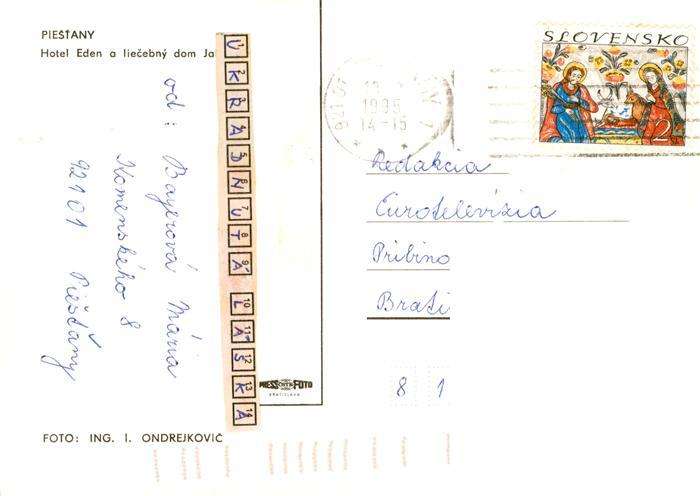 PIEŠŤANY
Hotel Eden a liečebný dom Ja
UKRADNUTÁ LÁSKA
od: Bayerová Mária
Komenského 8
92101 Piešťány
SLOVENSKO
2
1995
14-15
Redakcia
Eurotelevízia
Pribino
Brati
8 1
PRESSFOTO
BRATISLAVA
FOTO: ING. I. ONDREJKOVIČ